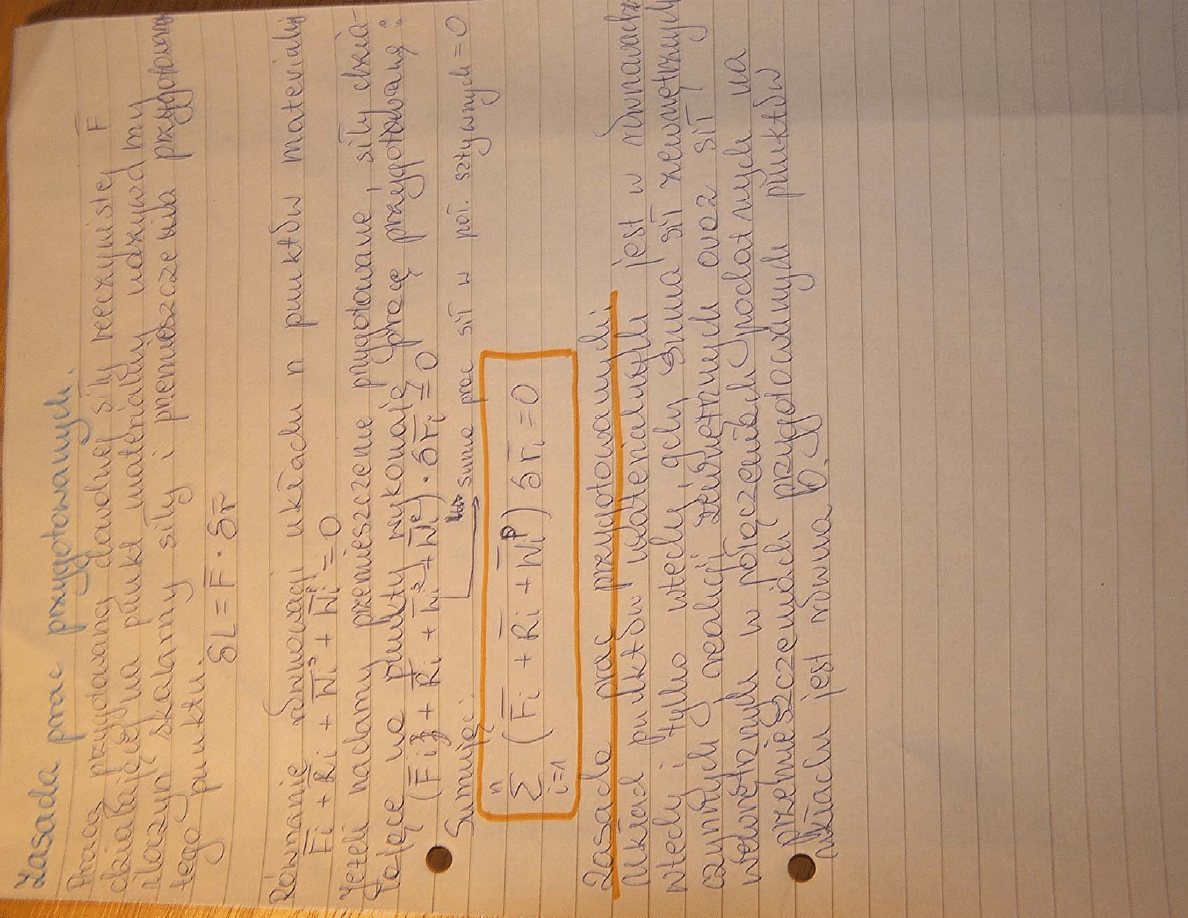 Zasada prac przygotowanych.
Pracą przygotowaną dowolnej siły rzeczywistej F̄
działającej na punkt materialny nazywamy
iloczyn skalarny siły i przemieszczenia przygotowanego
tego punktu.
δL = F̄ · δr̄
Równanie równowagi układu n punktów materialnych
F̄i + R̄i + W̄iˢ + W̄iᵖ = 0
Jeżeli nadamy przemieszczenie przygotowane, siły dzia-
łające na punkty wykonają pracę przygotowaną:
(F̄i + R̄i + W̄iˢ + W̄iᵖ) · δr̄i = 0
Sumując: suma prac sił w poł. sztywnych = 0
n
∑ (F̄i + R̄i + W̄iᵖ) δr̄i = 0
i=1
Zasada prac przygotowanych:
Układ punktów materialnych jest w równowadze
wtedy i tylko wtedy, gdy suma sił zewnętrznych
czynnych, reakcji zewnętrznych oraz sił
wewnętrznych w połączeniach podatnych na
przemieszczeniach przygotowanych punktów
układu jest równa 0.